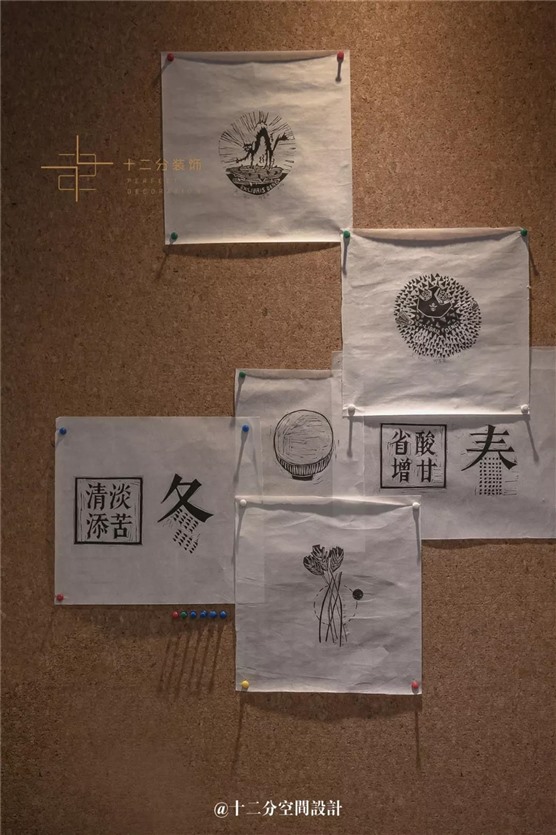 十二分装饰
省酸
增甘
春
清淡
添苦
冬
@十二分空間設計